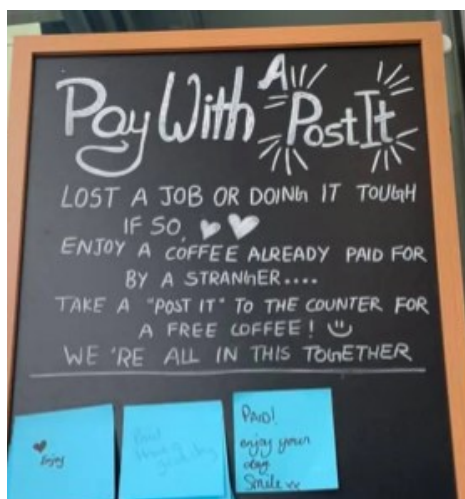 Pay With A Post It
LOST A JOB OR DOING IT TOUGH
IF SO,
ENJOY A COFFEE ALREADY PAID FOR
BY A STRANGER....
TAKE A "POST IT" TO THE COUNTER FOR
A FREE COFFEE!
WE'RE ALL IN THIS TOGETHER
Enjoy
Paid
PAID!
enjoy your
day
Smile xx